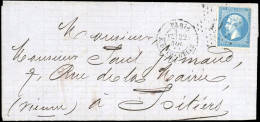 PARIS
22
Monsieur
Monsieur Paul Grimaud
7, Rue de la Mairie
(vienne) à Poitiers